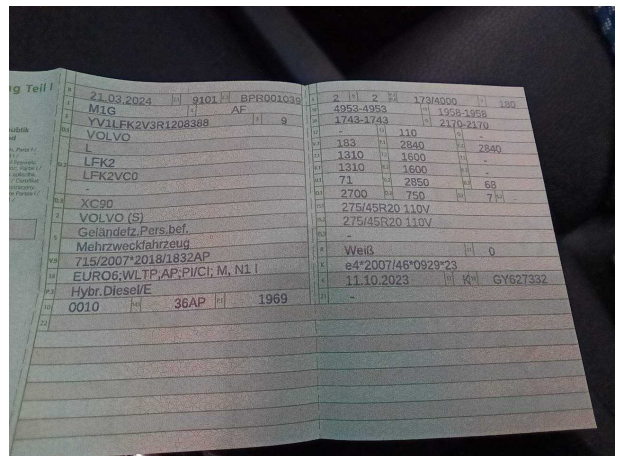 ng Teil I
21.03.2024 9101 BPR001039
M1G AF
YV1LFK2V3R1208388 9
VOLVO
L
LFK2
LFK2VC0
-
XC90
VOLVO (S)
Geländefz.Pers.bef.
Mehrzweckfahrzeug
715/2007*2018/1832AP
EURO6;WLTP,AP;PI/CI; M, N1 I
Hybr.Diesel/E
0010 36AP 1969
2 2 173/4000 180
4953-4953 1958-1958
1743-1743 2170-2170
- 110 -
183 2840 2840
1310 1600 -
1310 1600 -
71 2850 68
2700 750 7 -
275/45R20 110V
275/45R20 110V
-
Weiß 0
e4*2007/46*0929*23
11.10.2023 K GY627332
-